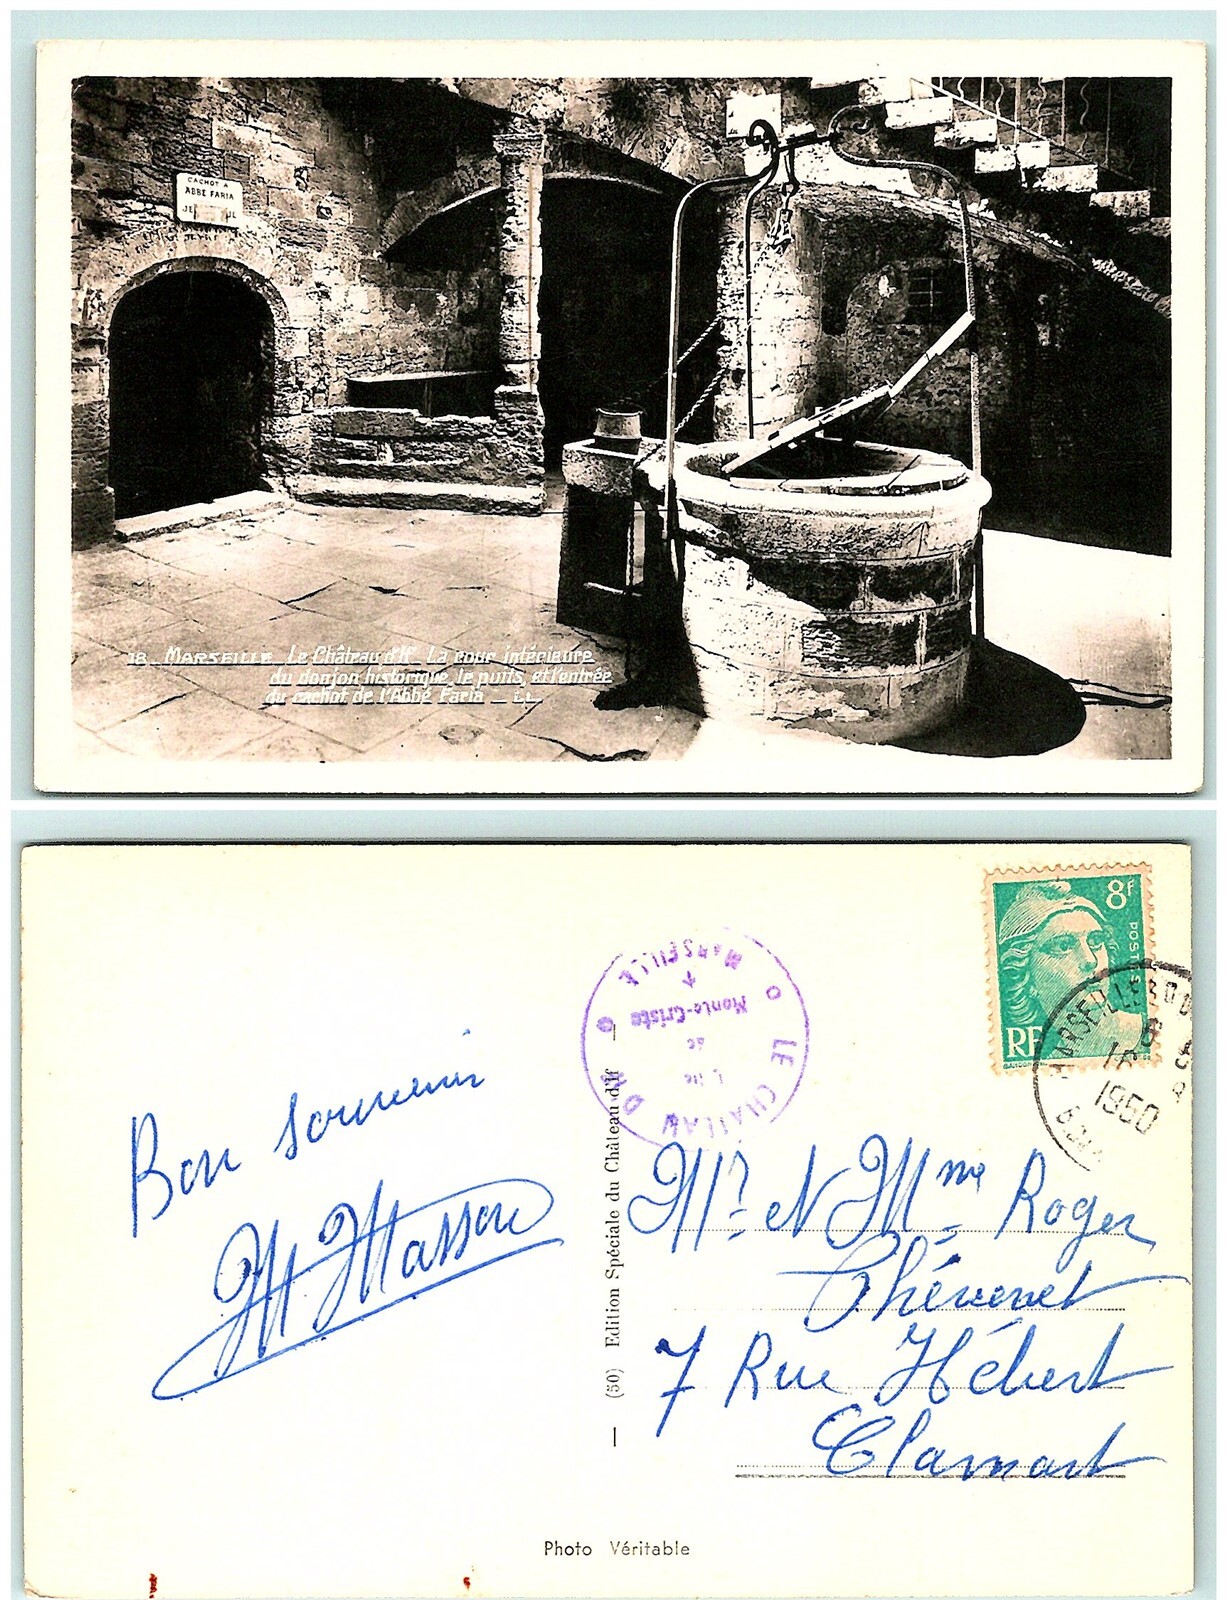 CACHOT A
ABBE FARIA
18_ MARSEILLE_ Le Château d'If_ La cour intérieure
du donjon historique, le puits, et l'entrée
du cachot de l'Abbé Faria _ LL
8F
POSTES
RF
MARSEILLE
1950
LE CHATEAU D'IF
Ile
de
Monte-Cristo
MARSEILLE
Bon souvenir
M Masson
Mr. et Mme Roger
Thévenet
7 Rue Hébert
Clamart
— (50) Edition Spéciale du Château d'If —
Photo Véritable